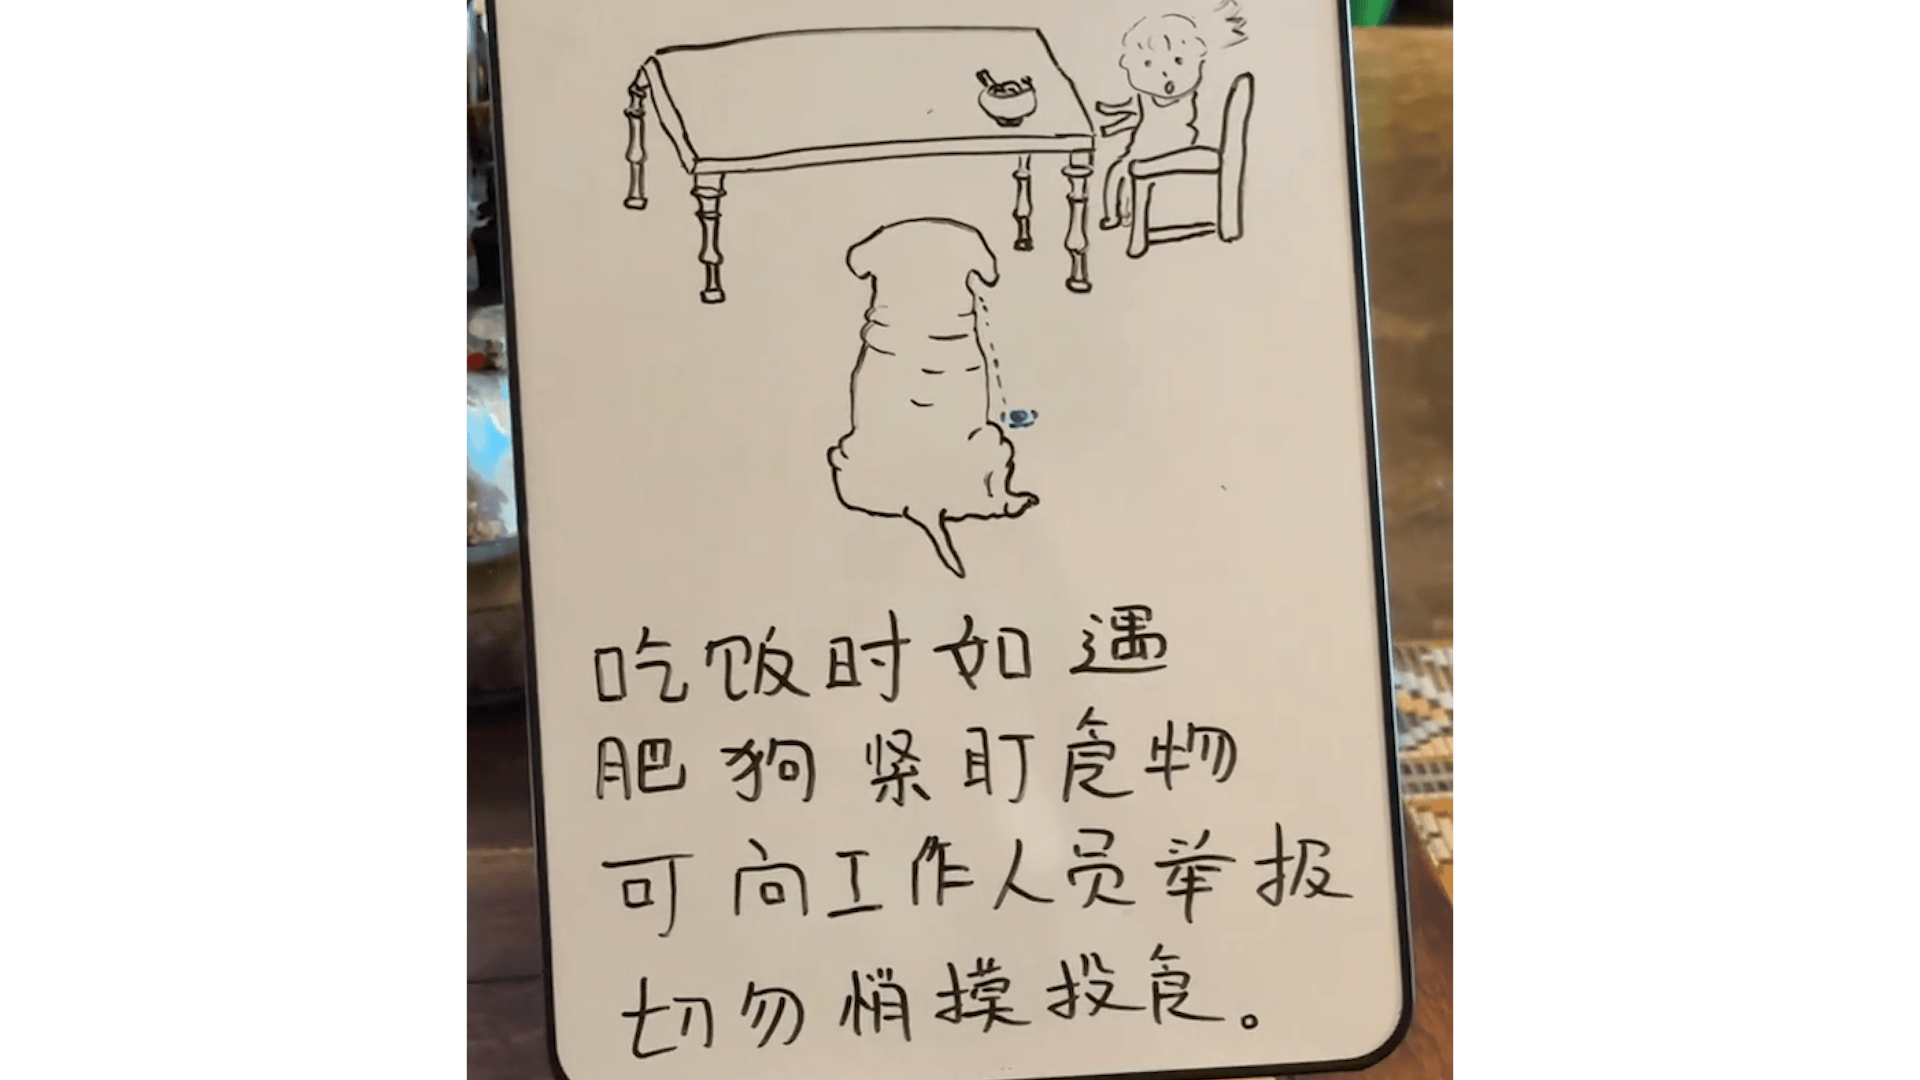 吃饭时如遇
肥狗紧盯食物
可向工作人员举报
切勿悄摸投食。